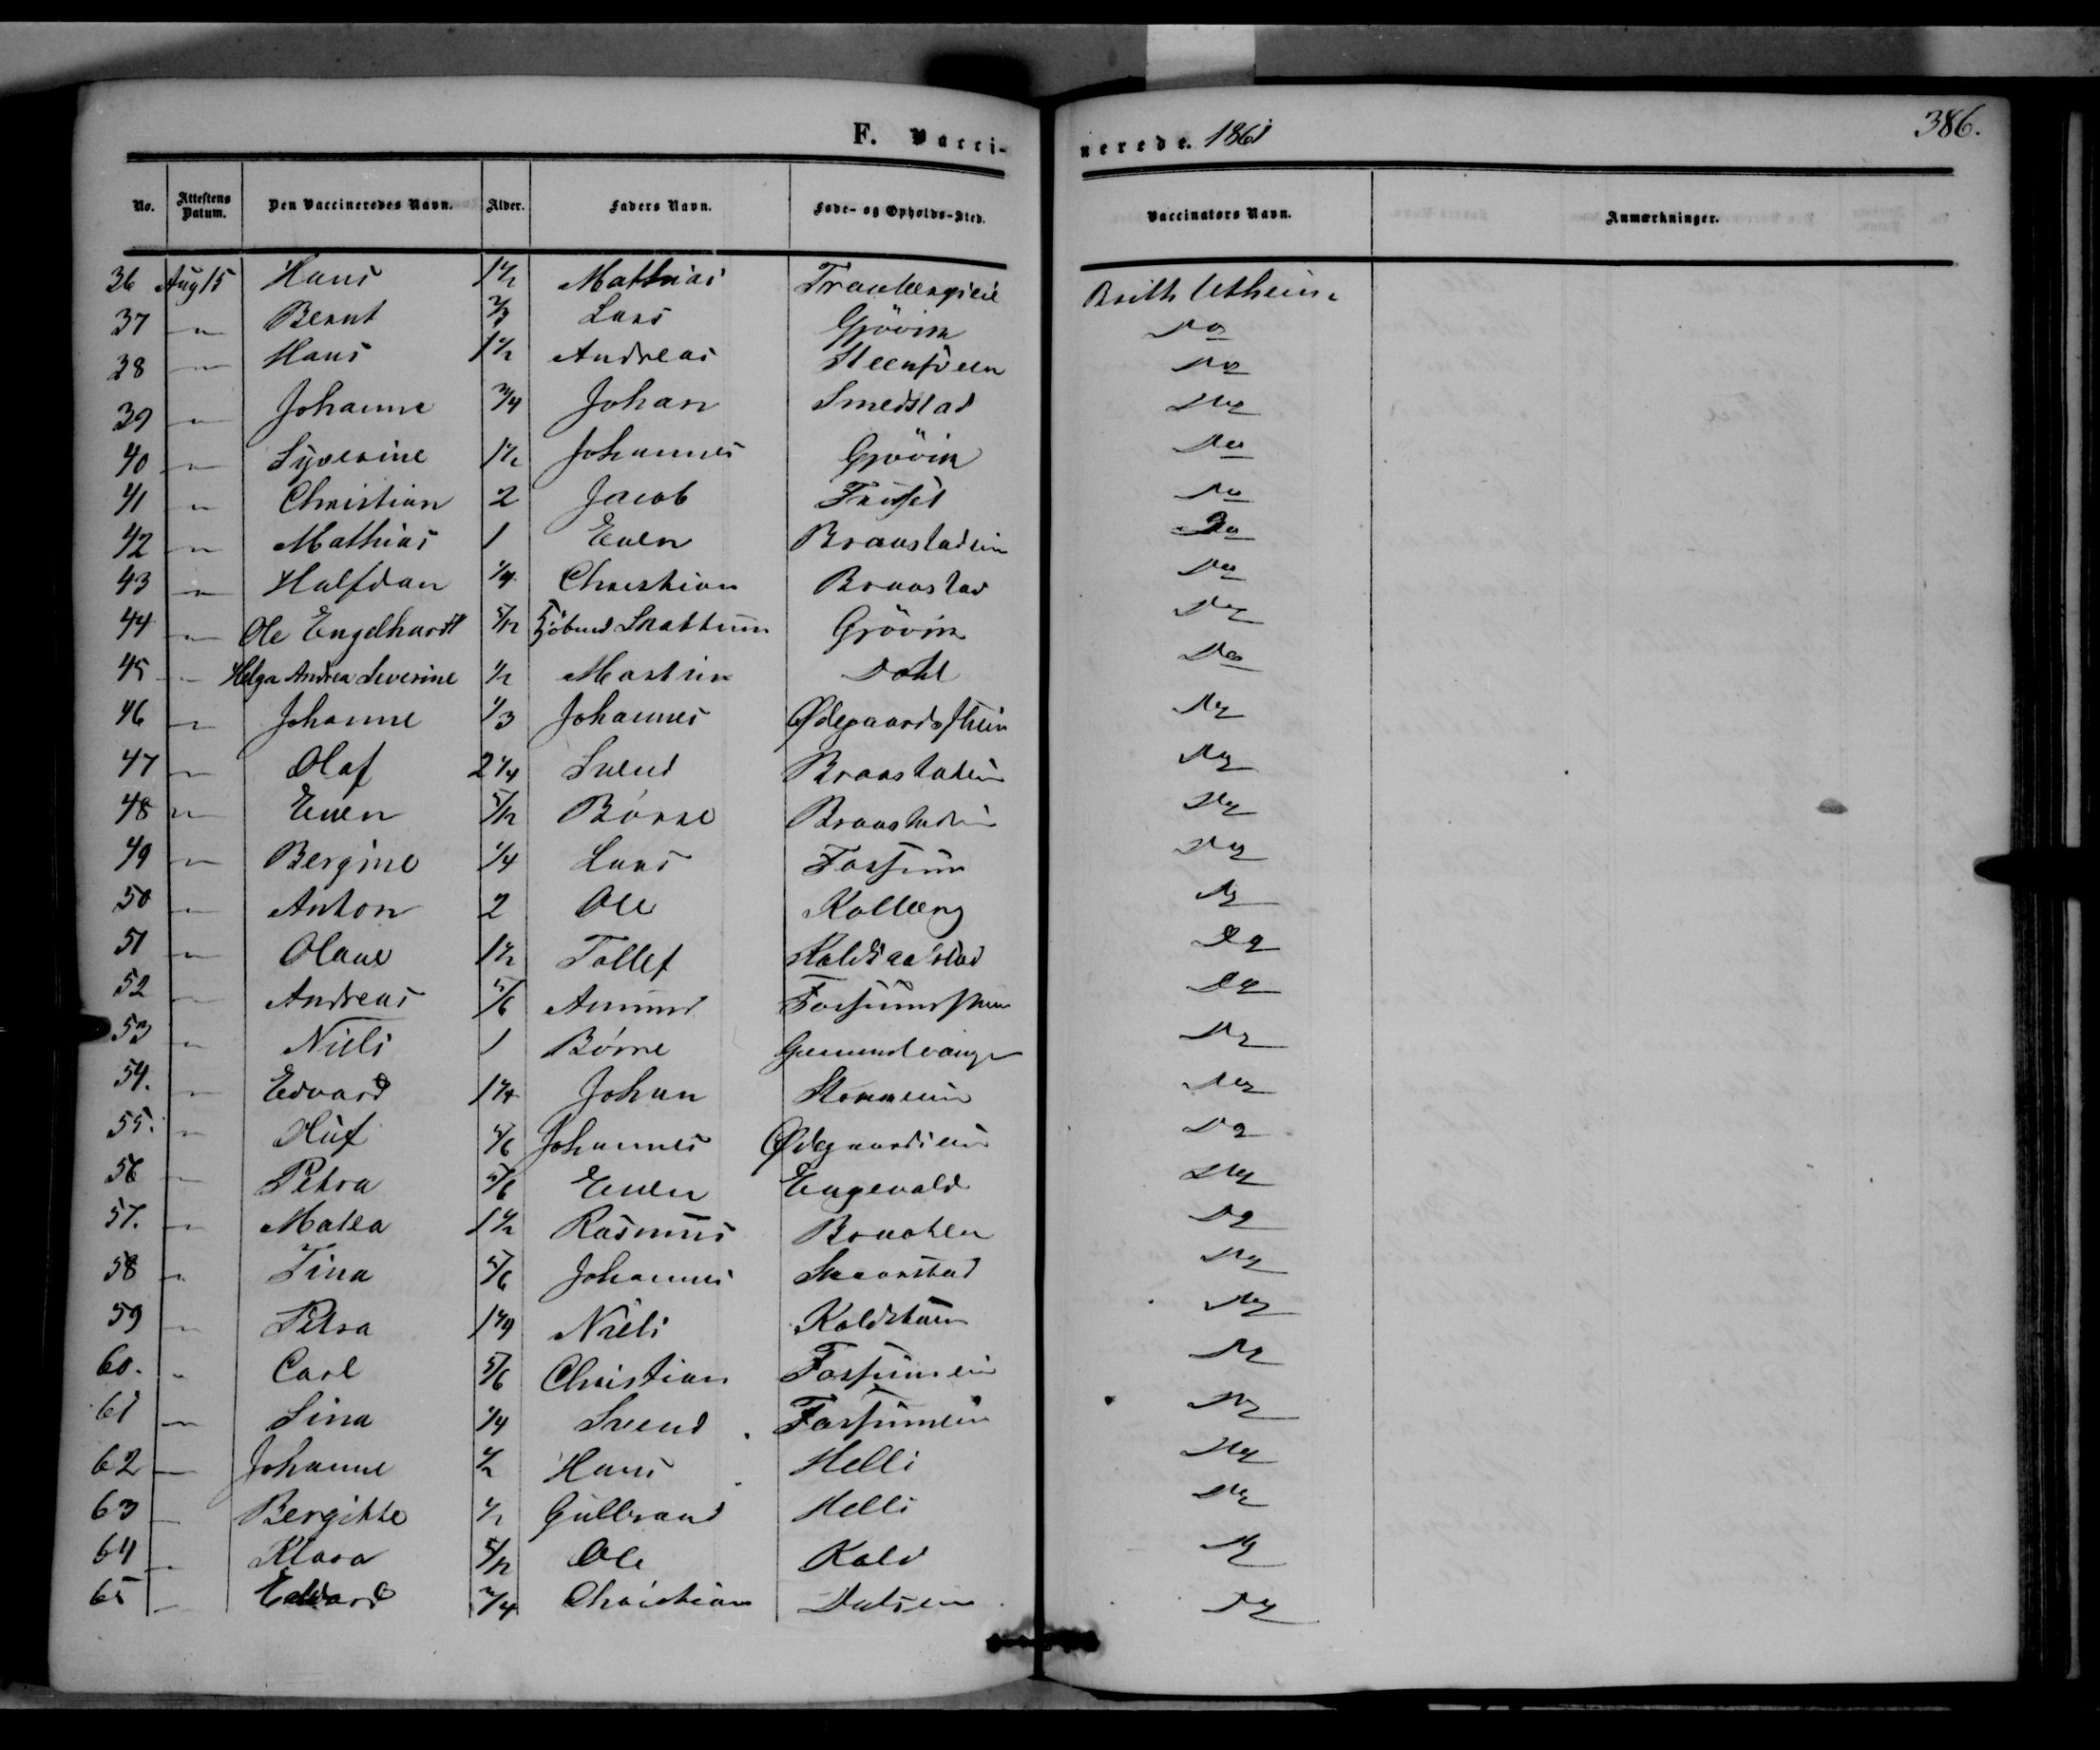 F. Vacci-
nerede. 1861
386.
No. Attestens Datum. Den Vaccineredes Navn. Alder. Faders Navn. Føde- og Opholds-Sted. Vaccinators Navn. Anmærkninger.
36 Aug 15 Hans 1 1/2 Mathias Brith Utheim
37 " Bernt Lars Gjövik Do
38 " Hans 1 1/2 Andreas Do
39 " Johanne 3/4 Johan Smedstad Do
40 " Syverine 1 1/2 Johannes Gjövik Do
41 " Christian 2 Jacob Do
42 " Mathias 1 Even Braastadein Do
43 " Halfdan 1/4 Christian Braastad Do
44 " Ole Engelhardt 5/12 Skattum Gjövik Do
45 " Helga Andrea Severine 1/2 Martin Dahl Do
46 " Johanne 1/3 Johannes Do
47 " Olaf 2 1/4 Svend Braastadein Do
48 " Even 5/12 Börre Braastadein Do
49 " Bergine 1/4 Lars Fossum Do
50 " Anton 2 Ole Kolberg Do
51 " Olaue 1 1/2 Tollef Do
52 " Andreas 5/6 Amund Do
53 " Niels 1 Börre Do
54. " Edvard 1 1/4 Johan Do
55. " Oluf 5/6 Johannes Ødegaardsein Do
56 " Petra 5/6 Even Engevold Do
57. " Matea 1 1/2 Rasmus Braaten Do
58 " Tina 5/6 Johannes Skaarstad Do
59 " Petra Niels Do
60. " Carl 5/6 Christian Fossumein Do
61 " Sina 1/4 Svend Fossumein Do
62 " Johanne 1/2 Hans Helli Do
63 " Bergitte 1/2 Gulbrand Helli Do
64 " Klara 5/12 Ole Kold Do
65 " Edvard 3/4 Christian Do